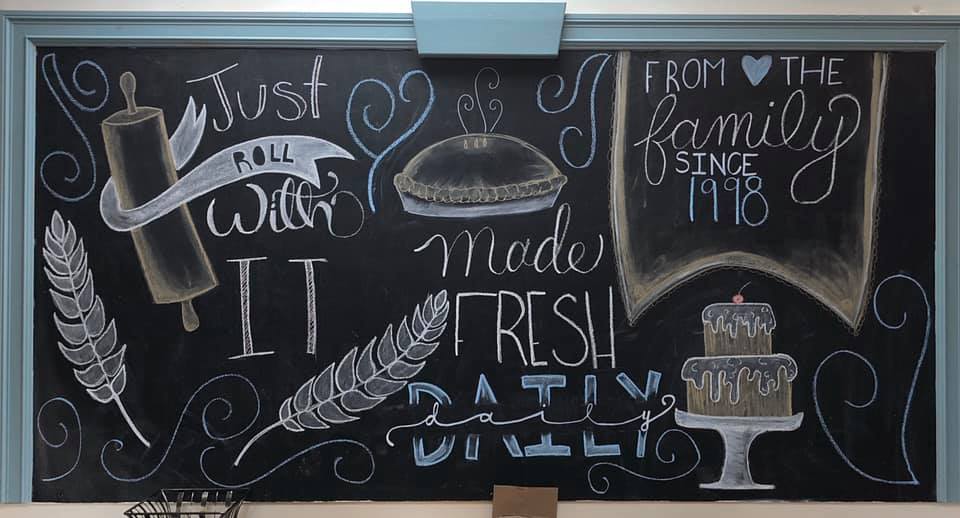 Just
ROLL
With
IT
made
FRESH
DAILY
daily
FROM THE
family
SINCE
1998